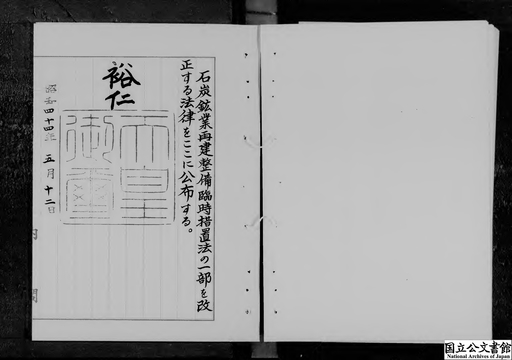 石炭鉱業再建整備臨時措置法の一部を改
正する法律をここに公布する。
裕仁
天皇
御璽
昭和四十四年五月十二日
内閣
国立公文書館
National Archives of Japan